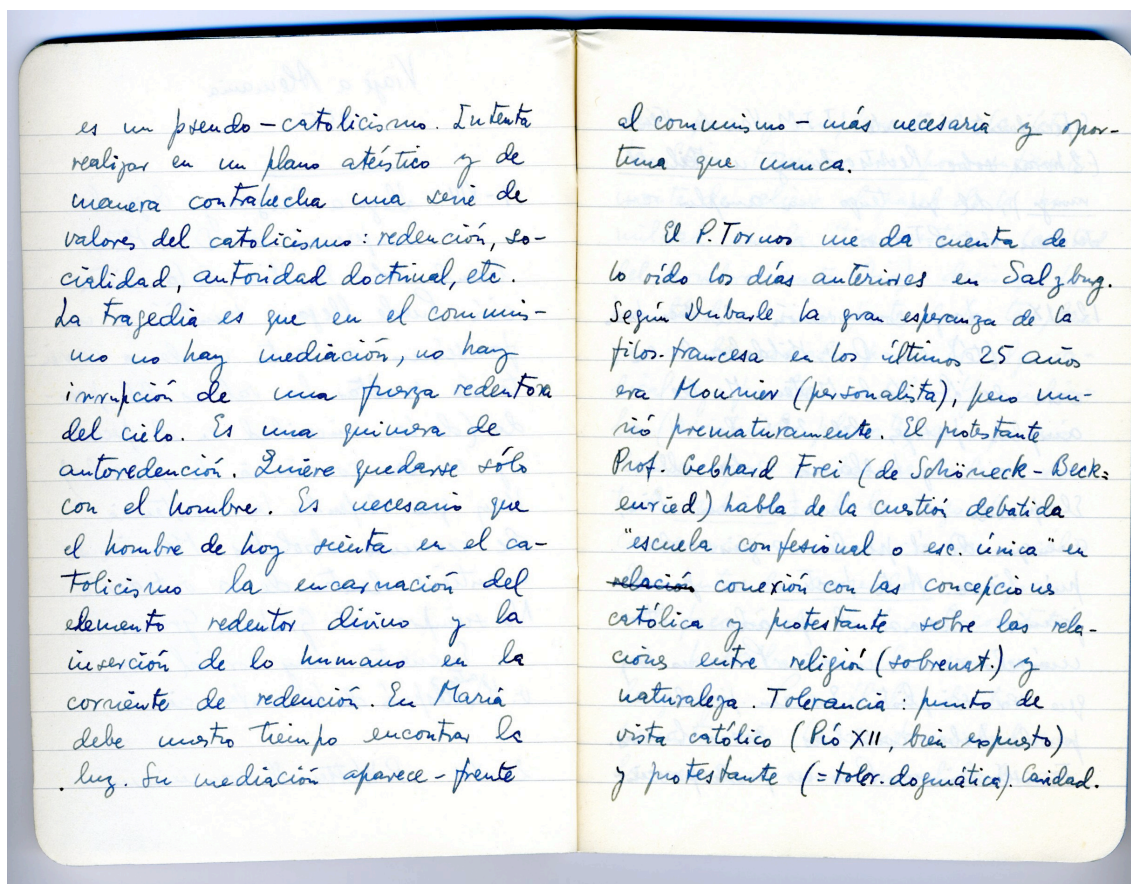 es un pseudo-catolicismo. Intenta
realizar en un plano ateístico y de
manera contrahecha una serie de
valores del catolicismo: redención, so-
cialidad, autoridad doctrinal, etc.
La tragedia es que en el comunis-
mo no hay mediación, no hay
irrupción de una fuerza redentora
del cielo. Es una quimera de
autoredención. Quiere quedarse sólo
con el hombre. Es necesario que
el hombre de hoy sienta en el ca-
tolicismo la encarnación del
elemento redentor divino y la
inserción de lo humano en la
corriente de redención. En María
debe nuestro tiempo encontrar la
luz. Su mediación aparece - frente
al comunismo - más necesaria y opor-
tuna que nunca.
El P. Tornos me da cuenta de
lo oído los días anteriores en Salzburg.
Según Dubarle la gran esperanza de la
filos. francesa en los últimos 25 años
era Mounier (personalista), pero mu-
rió prematuramente. El protestante
Prof. Gebhard Frei (de Schöneck-Beck=
enried) habla de la cuestión debatida
"escuela confesional o esc. única" en
relación conexión con las concepciones
católica y protestante sobre las rela-
ciones entre religión (sobrenat.) y
naturaleza. Tolerancia: punto de
vista católico (Pío XII, bien expuesto)
y protestante (=toler. dogmática). Caridad.